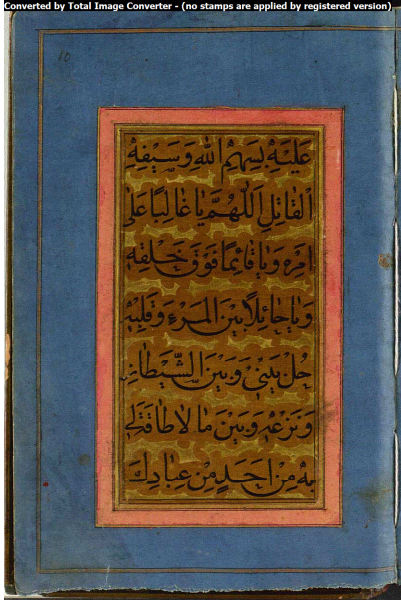 Converted by Total Image Converter - (no stamps are applied by registered version)
10
عَلَيْهِ بِسَهْمِ اللّٰهِ وَسَيْفِهِ
الْقَاتِلِ اَللّٰهُمَّ يَا غَالِبًا عَلٰى
اَمْرِهِ وَيَا قَائِمًا فَوْقَ خَلْقِهِ
وَيَا حَائِلًا بَيْنَ الْمَرْءِ وَقَلْبِهِ
حُلْ بَيْنِي وَبَيْنَ الشَّيْطَانِ
وَنَزْغِهِ وَبَيْنَ مَا لَا طَاقَةَ لِي
بِهِ مِنْ اَحَدٍ مِنْ عِبَادِكَ